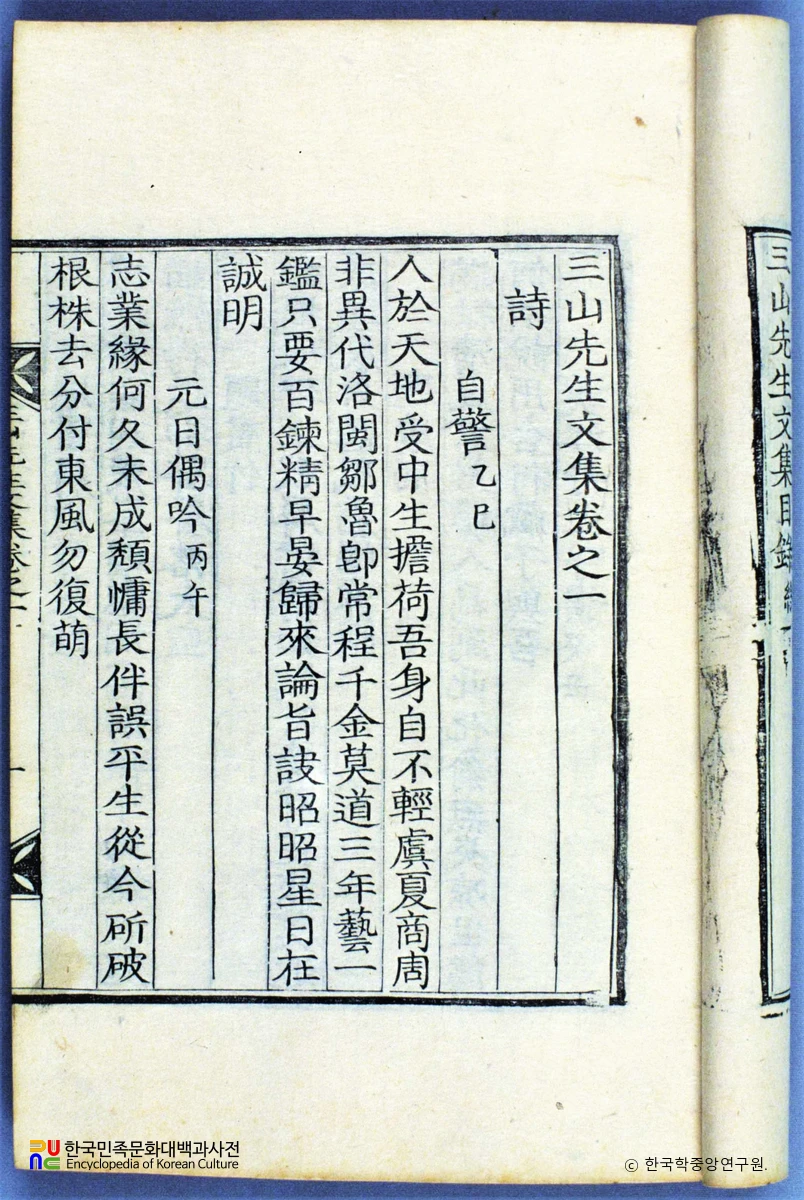 三山先生文集卷之一
詩
自警 乙巳
人於天地受中生擔荷吾身自不輕虞夏商周
非異代洛閩鄒魯卽常程千金莫道三年藝一
鑑只要百鍊精早晏歸來論旨訣昭昭星日在
誠明
元日偶吟 丙午
志業緣何久未成頹慵長伴誤平生從今斫破
根株去分付東風勿復萌
三山先生文集卷之一
一
三山先生文集目錄終
한국민족문화대백과사전
Encyclopedia of Korean Culture
ⓒ 한국학중앙연구원.